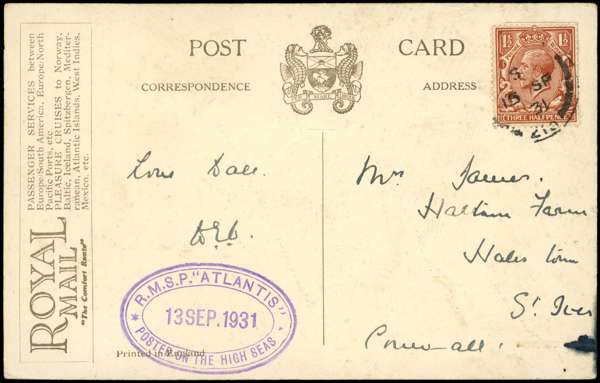 PASSENGER SERVICES between
Europe South America, Europe North
Pacific Ports, etc.
PLEASURE CRUISES to Norway,
Baltic, Iceland, Spitzbergen, Mediter-
ranean, Atlantic Islands, West Indies,
Mexico, etc.
ROYAL
MAIL
"The Comfort Route"
POST CARD
CORRESPONDENCE
ADDRESS
1½ 1½
THREE HALFPENCE
15 SP
31
Love Dall.
Mrs James.
Farm
Hales Town
St Ives
Cornwall.
R.M.S.P. "ATLANTIS"
13 SEP. 1931
POSTED ON THE HIGH SEAS
Printed in England